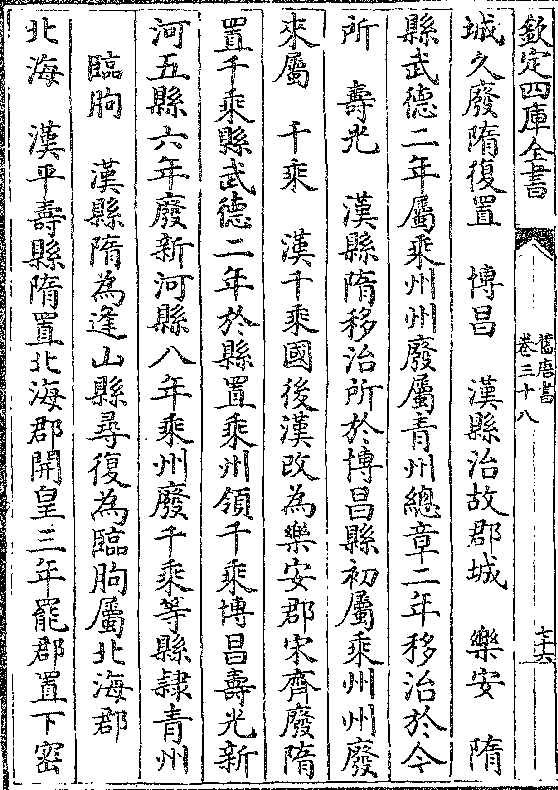 欽定四庫全書
舊唐書
卷三十八
七十六
城久廢隋復置　博昌　漢縣治故郡城　樂安　隋
縣武德二年屬乘州州廢屬青州總章二年移治於今
所　壽光　漢縣隋移治所於博昌縣初屬乘州州廢
來屬　千乘　漢千乘國後漢改為樂安郡宋齊廢隋
置千乘縣武德二年於縣置乘州領千乘博昌壽光新
河五縣六年廢新河縣八年乘州廢千乘等縣隸青州
臨朐　漢縣隋為逢山縣尋復為臨朐屬北海郡
北海　漢平壽縣隋置北海郡開皇三年罷郡置下密